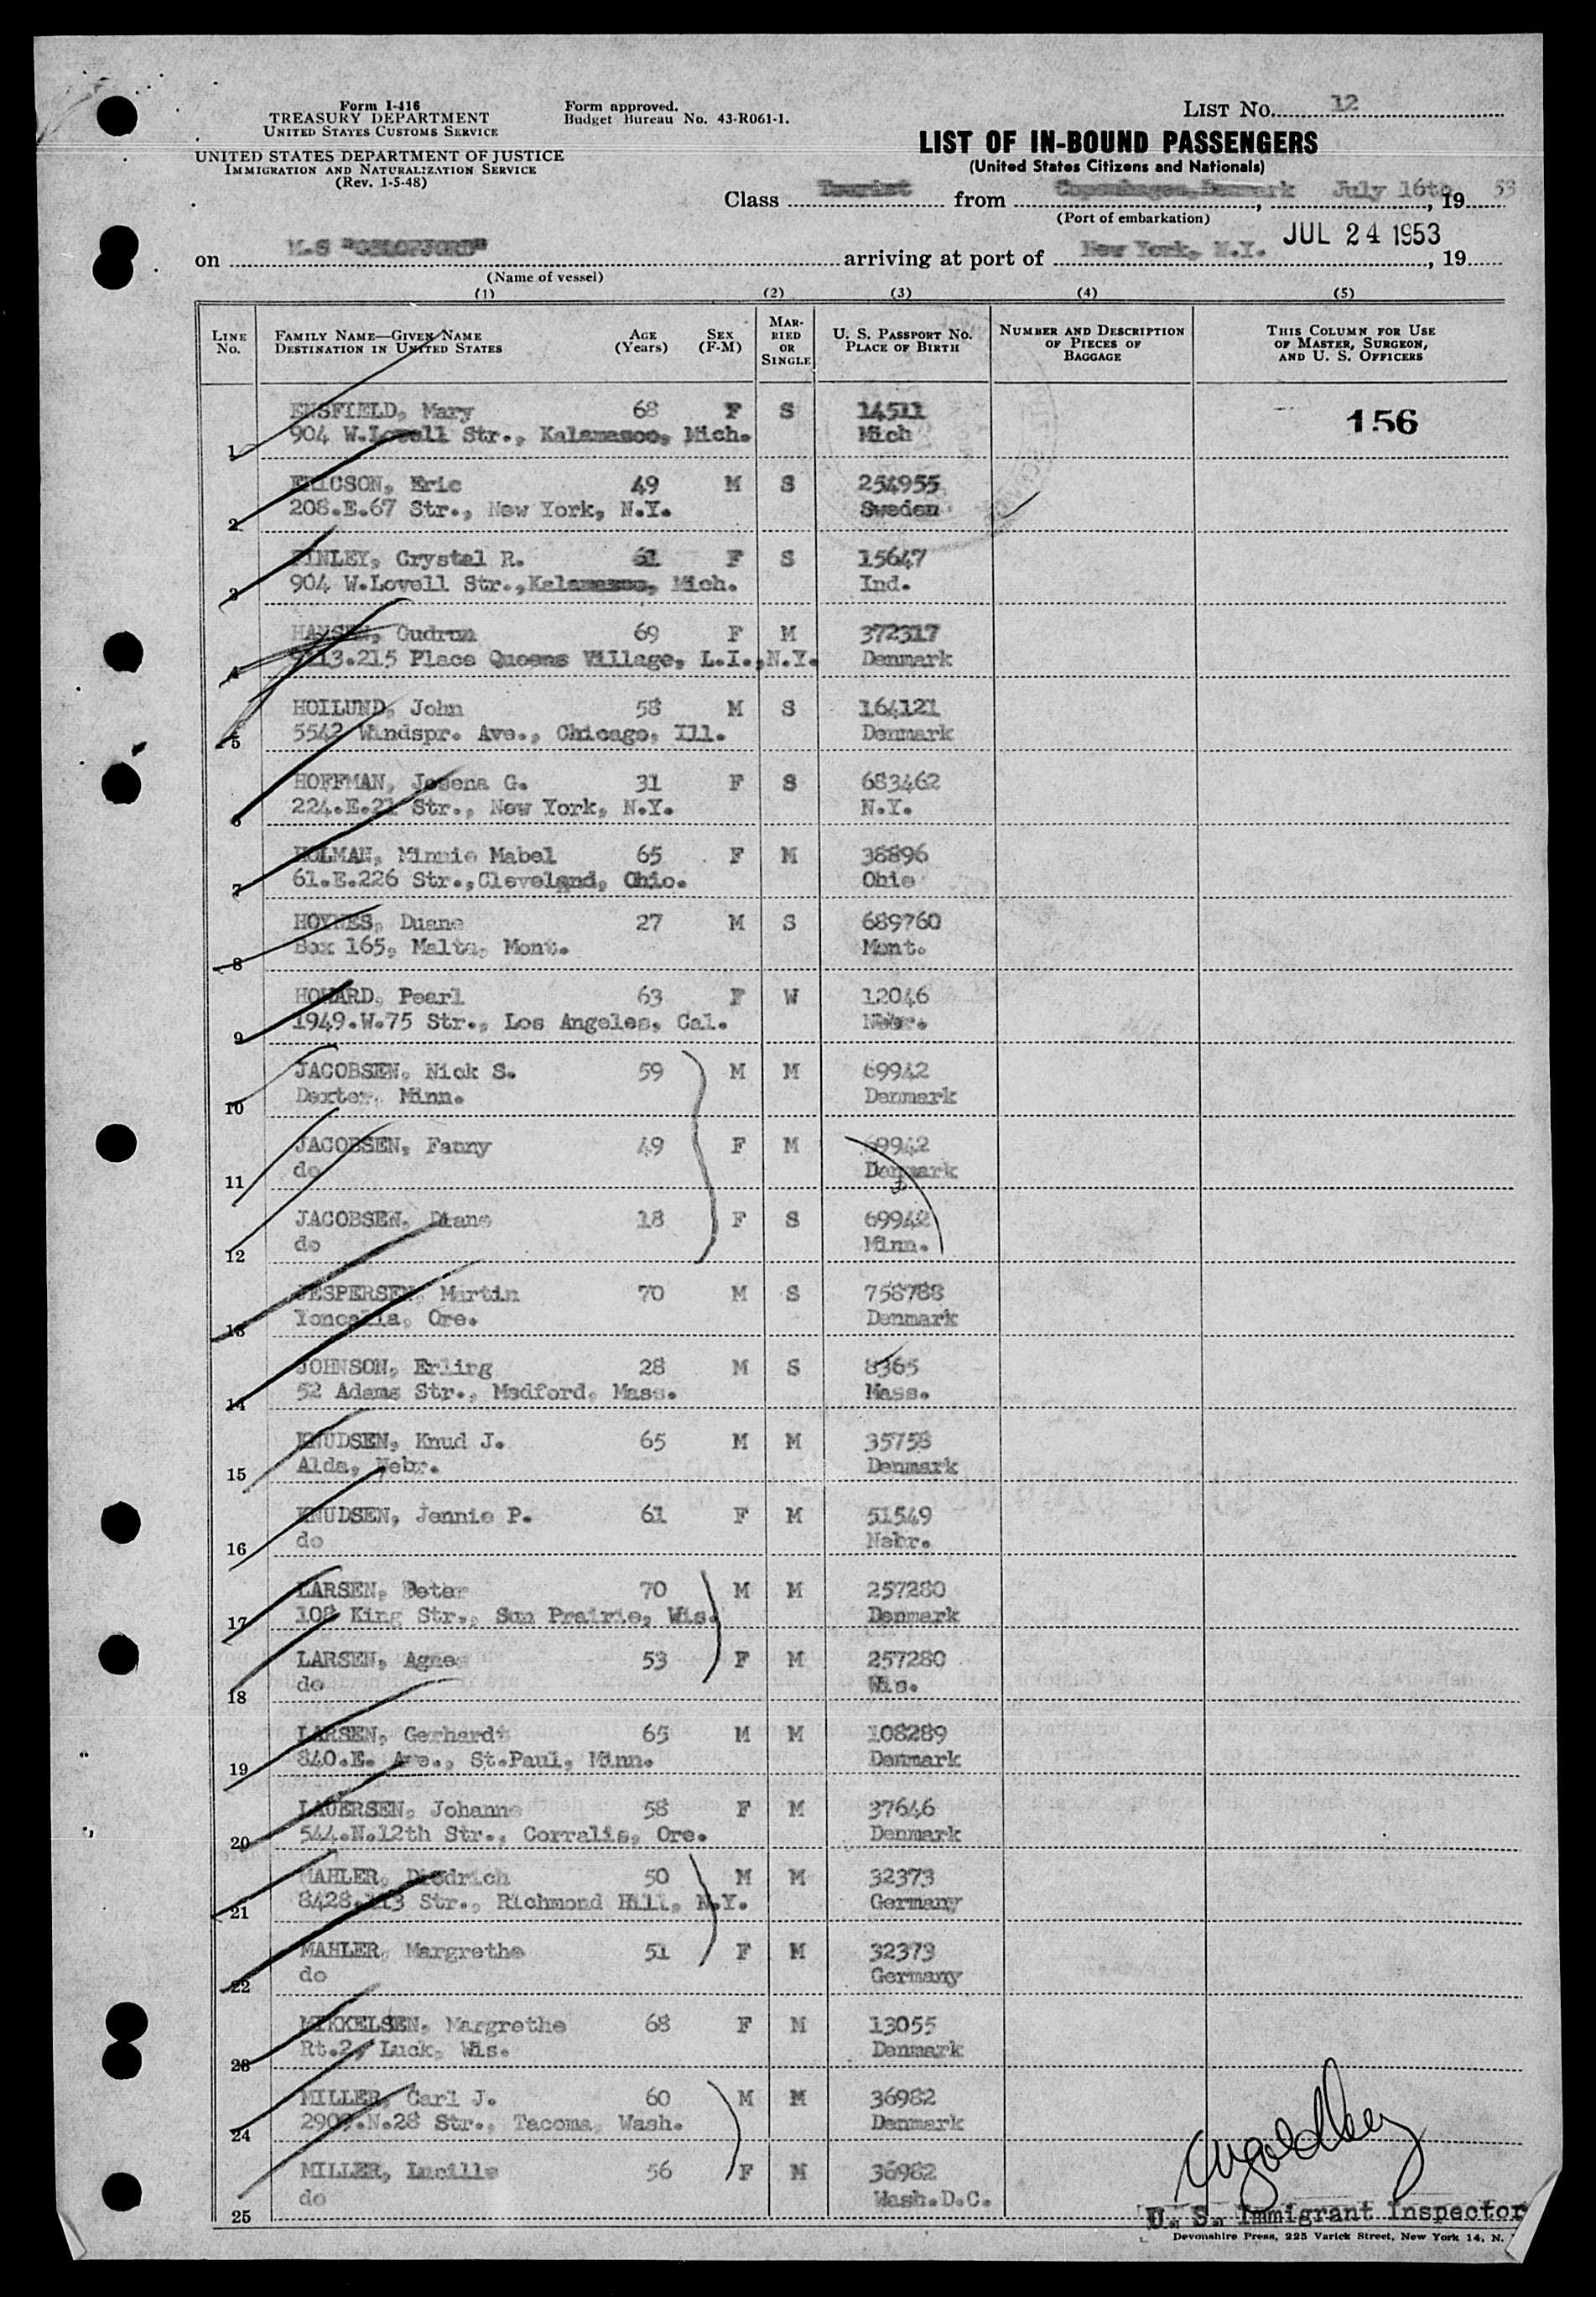 Form I-416
TREASURY DEPARTMENT
UNITED STATES CUSTOMS SERVICE
UNITED STATES DEPARTMENT OF JUSTICE
IMMIGRATION AND NATURALIZATION SERVICE
(Rev. 1-5-48)
Form approved.
Budget Bureau No. 43-R061-1.
LIST NO. 12
LIST OF IN-BOUND PASSENGERS
(United States Citizens and Nationals)
Class Tourist from Copenhagen, Denmark July 16th, 19 53
(Port of embarkation)
on M.S "OSLOFJORD" arriving at port of New York, N.Y. JUL 24 1953, 19
(Name of vessel)
(1) (2) (3) (4) (5)
LINE NO.
FAMILY NAME—GIVEN NAME
DESTINATION IN UNITED STATES
AGE (Years)
SEX (F-M)
MARRIED OR SINGLE
U. S. PASSPORT NO.
PLACE OF BIRTH
NUMBER AND DESCRIPTION OF PIECES OF BAGGAGE
THIS COLUMN FOR USE OF MASTER, SURGEON, AND U. S. OFFICERS
156
ENSFIELD, Mary 68 F S 14511
1 904 W.Lovell Str., Kalamazoo, Mich. Mich
ERICSON, Eric 49 M S 254955
2 208.E.67 Str., New York, N.Y. Sweden
FINLEY, Crystal R. 61 F S 15647
3 904 W.Lovell Str., Kalamazoo, Mich. Ind.
HANSEN, Gudrun 69 F M 372317
4 9213.215 Place Queens Village, L.I., N.Y. Denmark
HOILUND, John 58 M S 164121
5 5542 Windspr. Ave., Chicago, Ill. Denmark
HOFFMAN, Josena G. 31 F S 683462
6 224.E.21 Str., New York, N.Y. N.Y.
HOLMAN, Minnie Mabel 65 F M 38896
7 61.E.226 Str., Cleveland, Ohio. Ohio
HOYNES, Duane 27 M S 689760
8 Box 165, Malta, Mont. Mont.
HOWARD, Pearl 63 F W 12046
9 1949.W.75 Str., Los Angeles, Cal. Nebr.
JACOBSEN, Nick S. 59 M M 69942
10 Dexter, Minn. Denmark
JACOBSEN, Fanny 49 F M 69942
11 do Denmark
JACOBSEN, Diane 18 F S 69942
12 do Minn.
JESPERSEN, Martin 70 M S 758788
13 Yoncalla, Ore. Denmark
JOHNSON, Erling 28 M S 8365
14 52 Adams Str., Medford, Mass. Mass.
KNUDSEN, Knud J. 65 M M 35758
15 Alda, Nebr. Denmark
KNUDSEN, Jennie P. 61 F M 51549
16 do Nebr.
LARSEN, Peter 70 M M 257280
17 108 King Str., Sun Prairie, Wis. Denmark
LARSEN, Agnes 53 F M 257280
18 do Wis.
LARSEN, Gerhardt 65 M M 108289
19 840.E. Ave., St.Paul, Minn. Denmark
LAUERSEN, Johanne 58 F M 37646
20 544.N.12th Str., Corralis, Ore. Denmark
MAHLER, Diedrich 50 M M 32373
21 8428.113 Str., Richmond Hill, N.Y. Germany
MAHLER, Margrethe 51 F M 32373
22 do Germany
MIKKELSEN, Margrethe 68 F M 13055
23 Rt.2, Luck, Wis. Denmark
MILLER, Carl J. 60 M M 36982
24 2909.N.28 Str., Tacoma, Wash. Denmark
MILLER, Lucille 56 F M 36982
25 do Wash.D.C.
U. S. Immigrant Inspector
Devonshire Press, 225 Varick Street, New York 14, N.